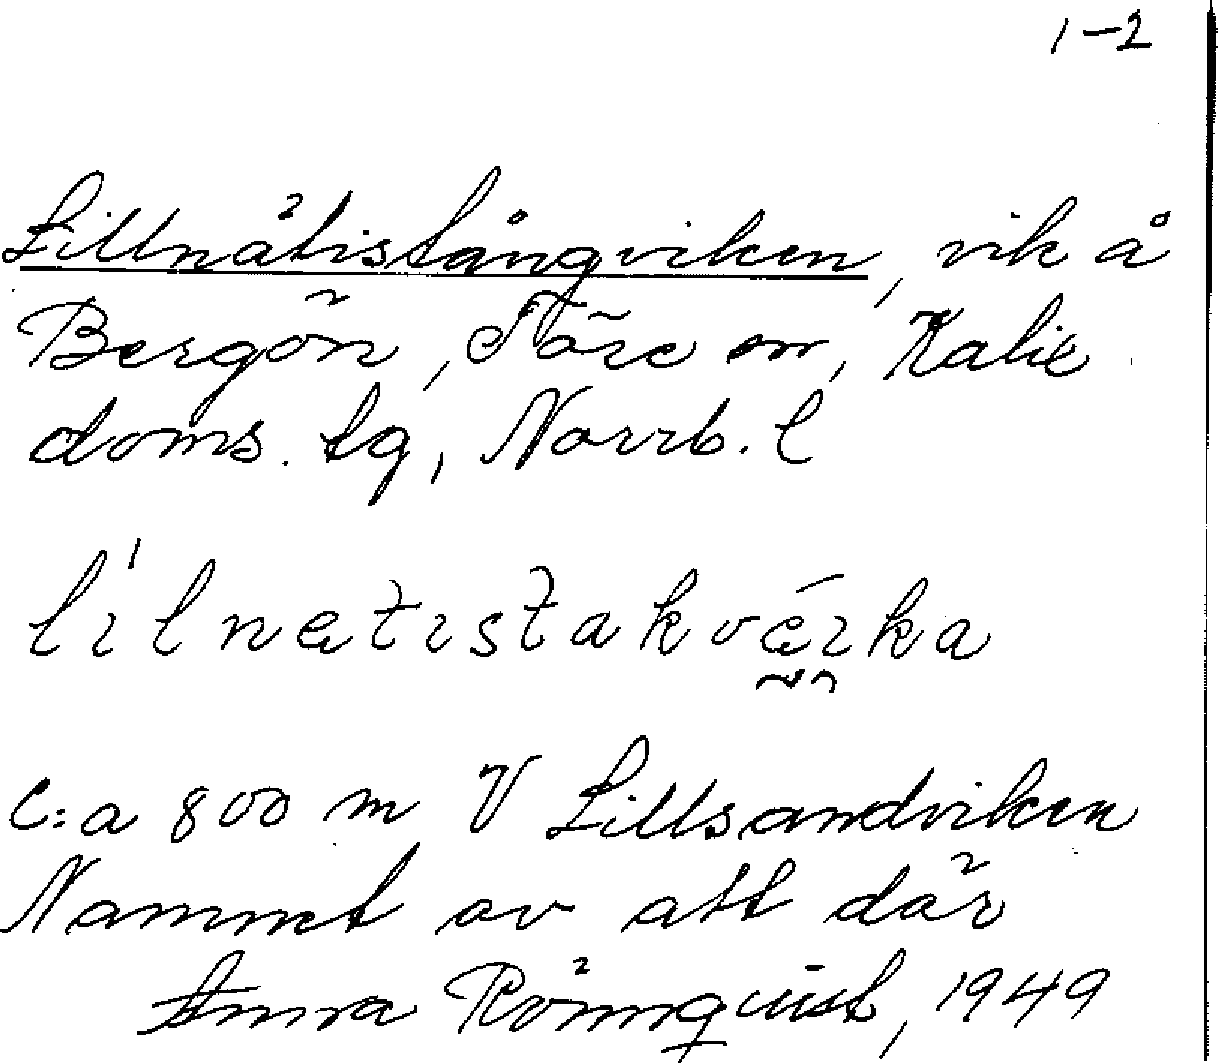 1–2
Lillnätistångviken, vik å
Bergön, Töre sn, Kalix
doms. tg, Norrb. l
c:a 800 m V Lillsandviken
Namnet av att där
Anna Rönnqvist, 1949